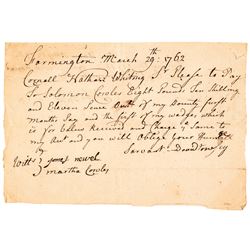 Farmington March 29th 1762
Conall Nathan Whiting Sr Please to Pay
To Solomon Cowles Eight Pounds Ten Shilling
and Eleven Pence Out of my Bounty first
months Pay and the first of my wages which
is for Value Received and Charge ye Same to
my Acct and you will Oblige your Humble
Servant
Witt
Jones
martha Cowles